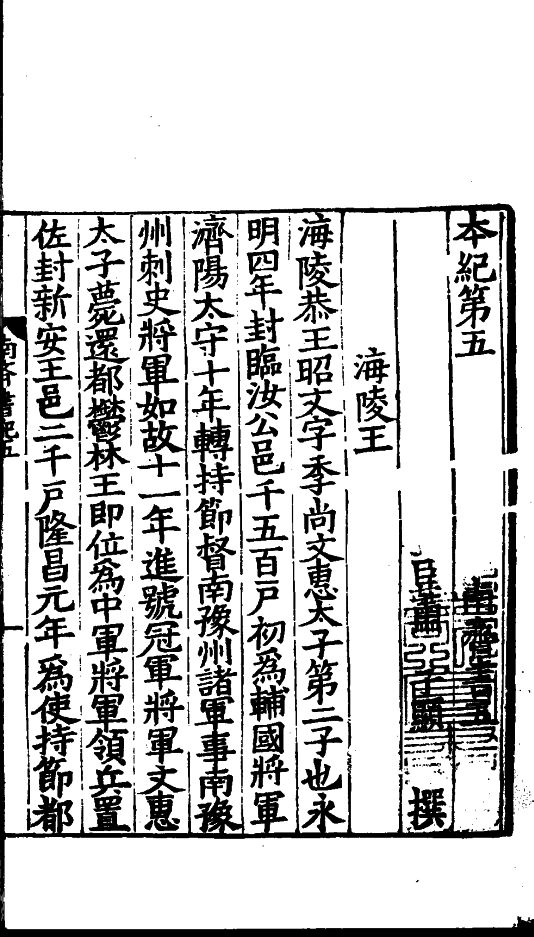 本紀第五 南齊書五
臣蕭子顯 撰
海陵王
海陵恭王昭文字季尚文惠太子第二子也永
明四年封臨汝公邑千五百戸初為輔國將軍
濟陽太守十年轉持節督南豫州諸軍事南豫
州刺史將軍如故十一年進號冠軍將軍文惠
太子薨還都鬱林王即位為中軍將軍領兵置
佐封新安王邑二千戸隆昌元年為使持節都
南齊書紀五
一